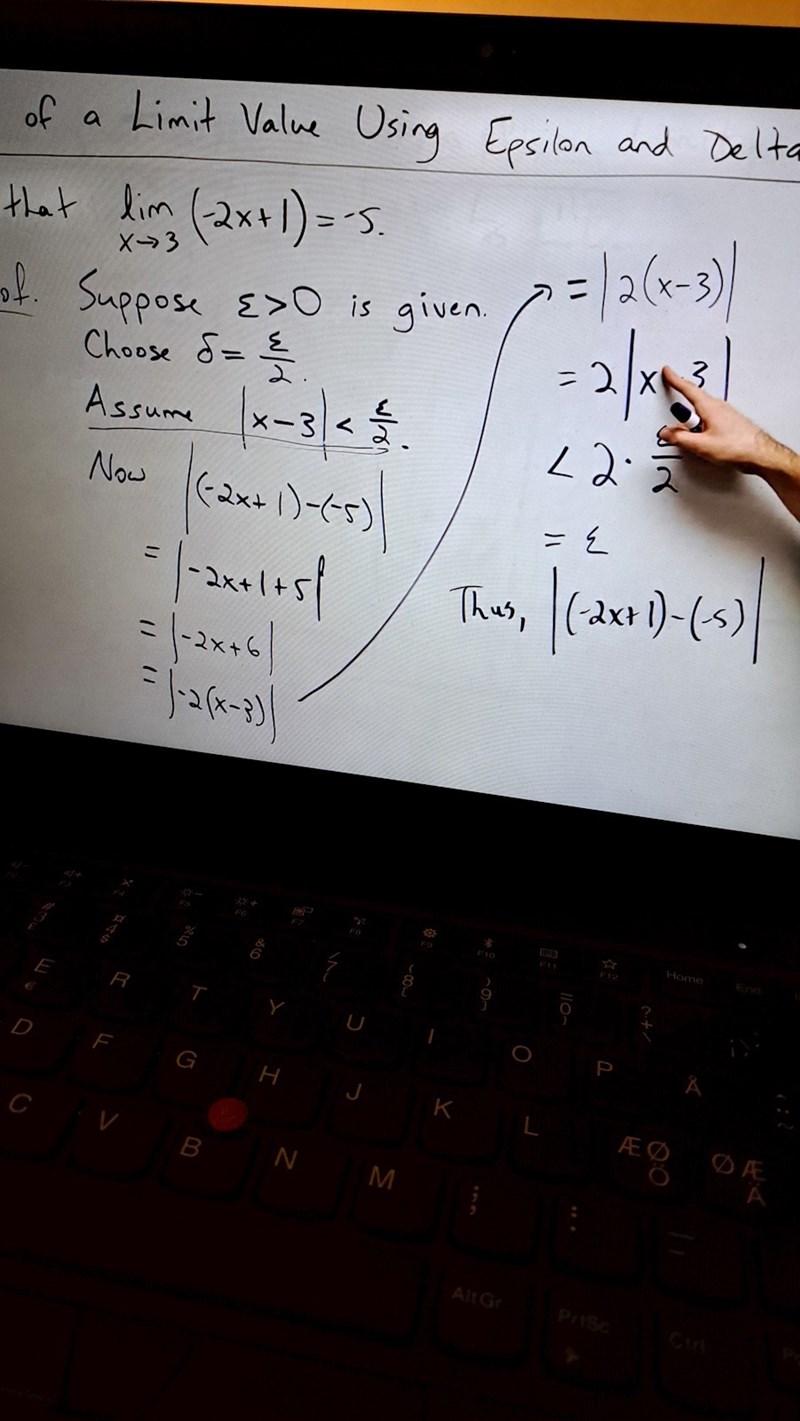 of a Limit Value Using Epsilon and Delta
that lim x→3 (-2x+1) = -5.
of. Suppose ε>0 is given.
Choose δ = ε/2.
Assume |x-3| < ε/2.
Now |(-2x+1)-(-5)|
= |-2x+1+5|
= |-2x+6|
= |-2(x-3)|
= |2(x-3)|
= 2|x-3|
< 2·ε/2
= ε
Thus, |(-2x+1)-(-5)|
F9 F10 F11 F12 Home End
% 5 & 6 / 7 { ( 8 [ ) 9 ] = 0 } ? + \
E € R T Y U I O P Å
D F G H J K L Æ Ø Ö Ø Æ Ä
C V B N M ; : _
AltGr PrtSc Ctrl